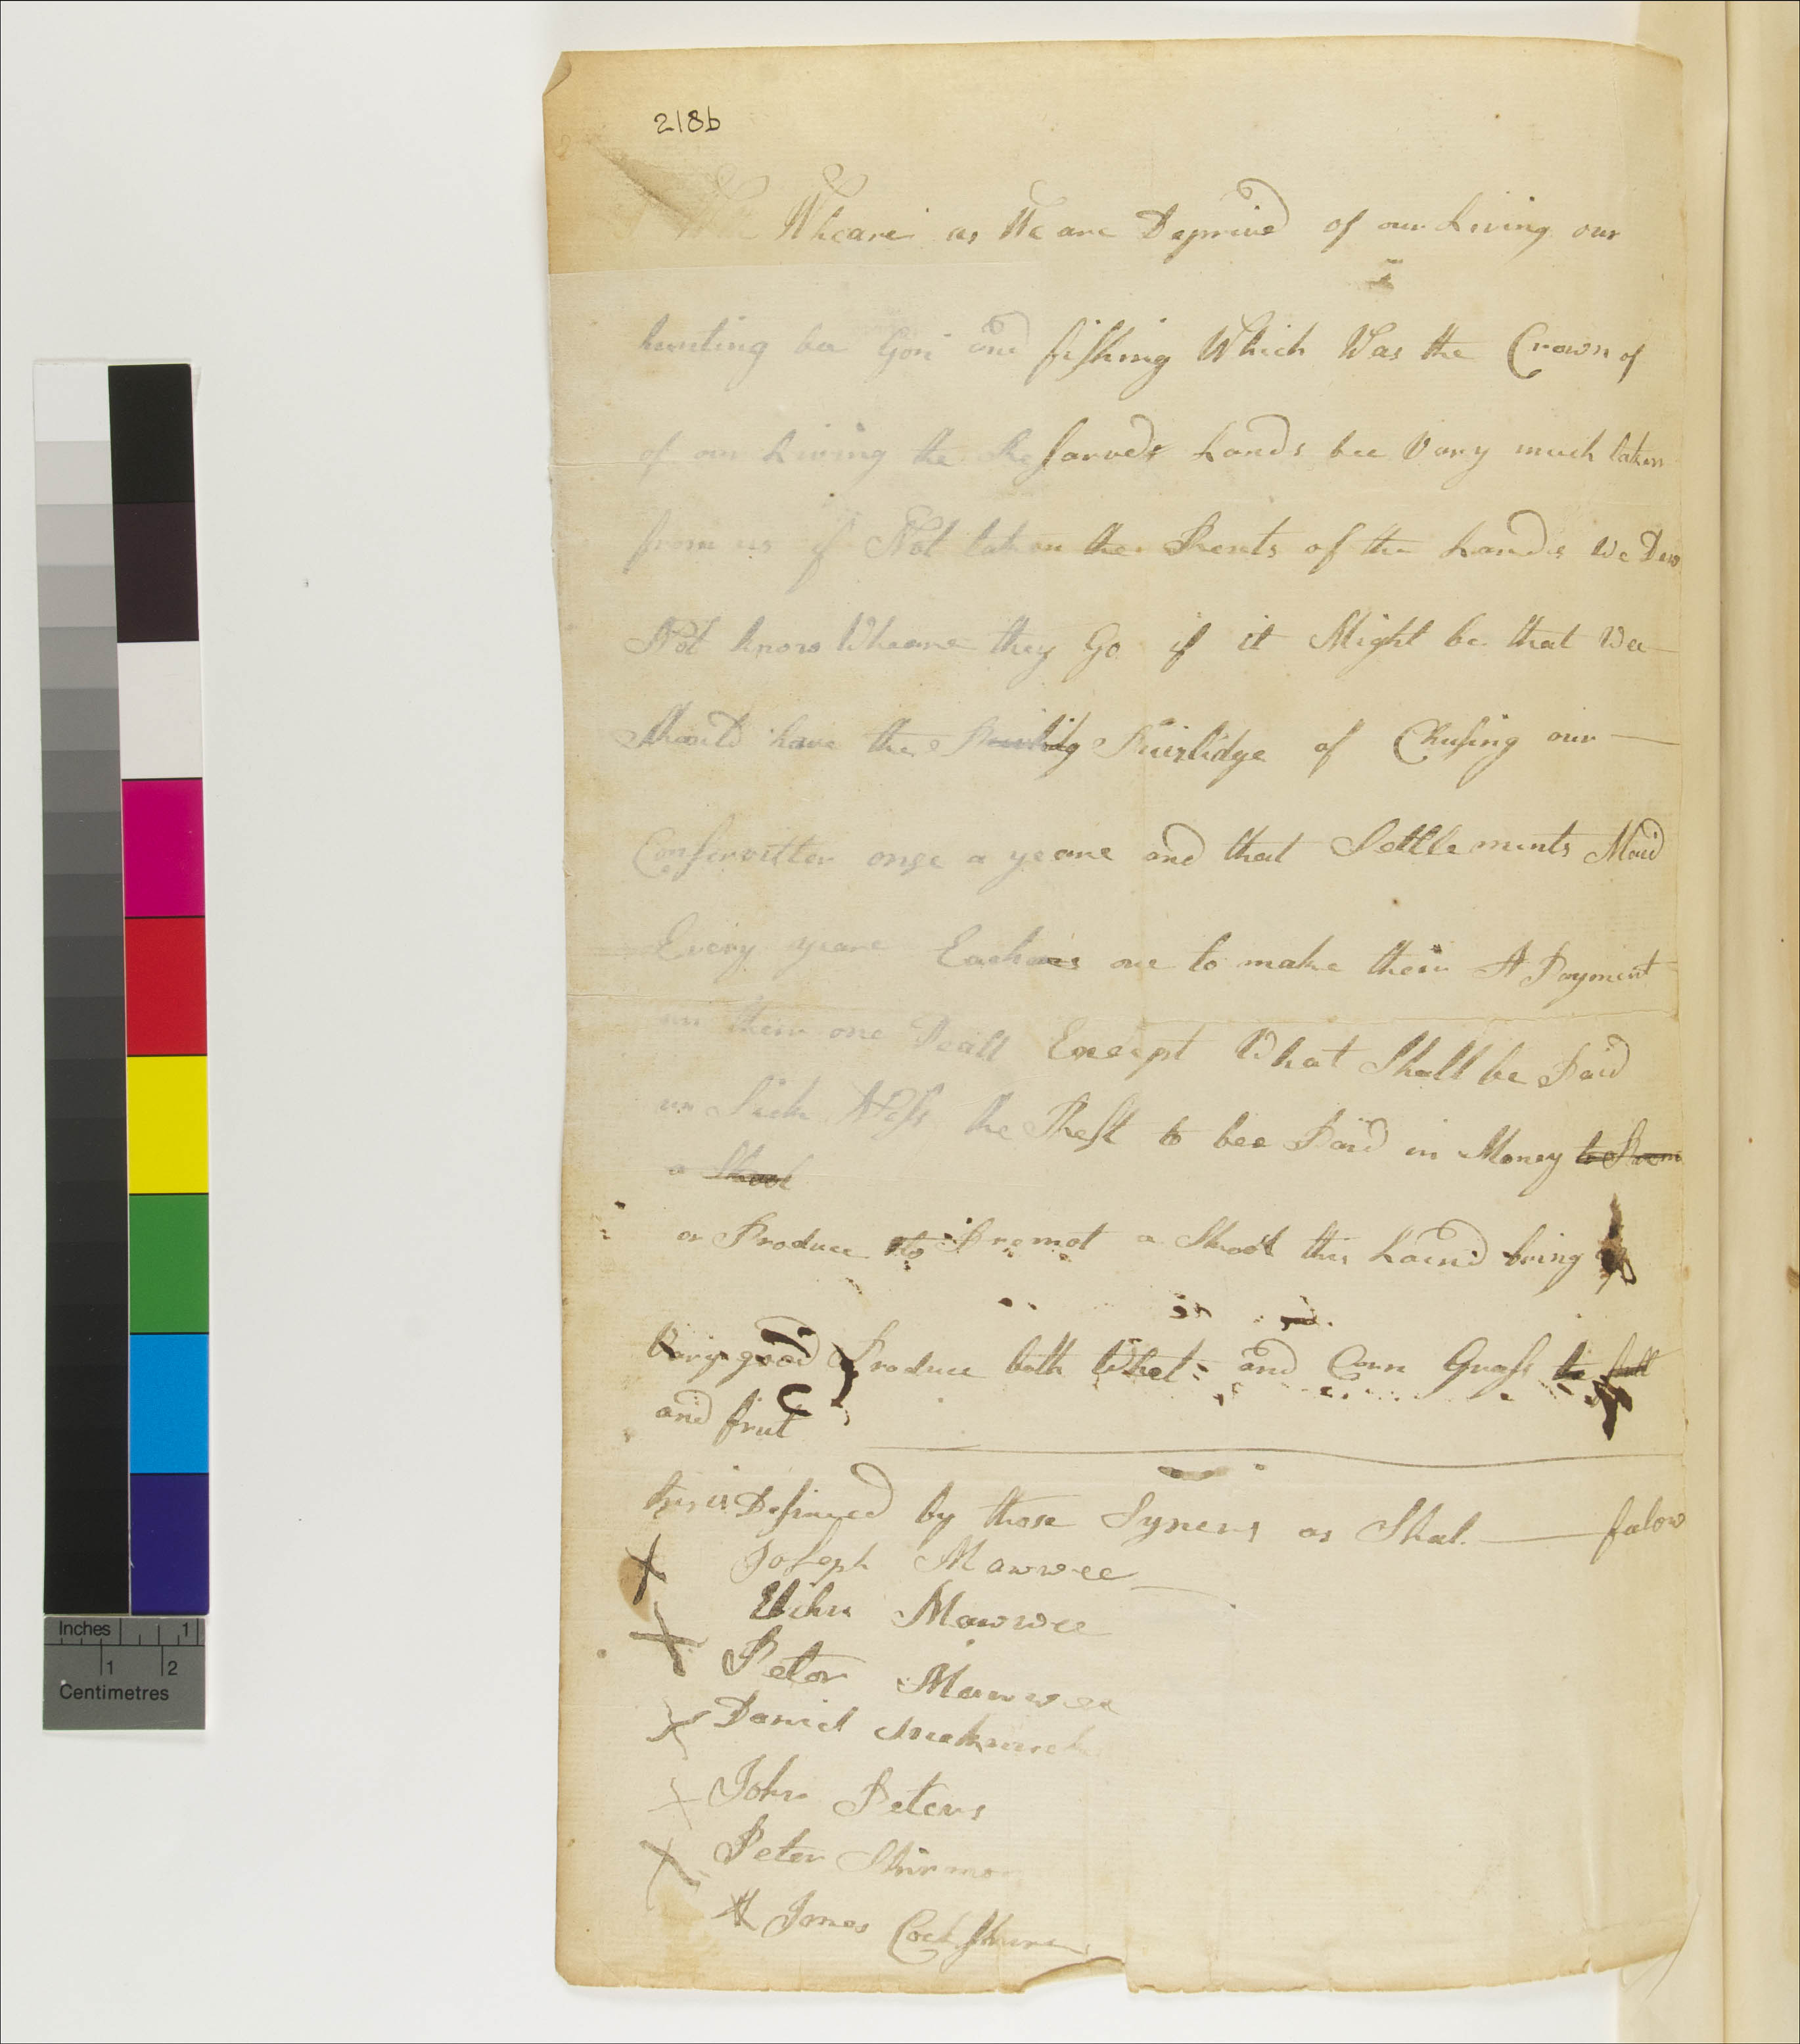 218b
Wheare as We are Deprived of our Living our
hunting be Gon and fishing Which Was the Crown of
of our Living the Resarveds Lands bee Vary much taken
from us if Not taken the Rents of the Lands We Dew
Not know Wheare they Go if it Might be that Wee
Should have the Privlidge of Chusing our
Conservitter onse a yeare and that Settlements Maid
Every yeare Each one to make their A Payment
in their one Reall Except What Shall be Paid
in Sick Ness the Rest to bee Paid in Money to
a Skool
or Produce to Premot a Skool this Laend bring up
Vary good Produce both Whet and Corn Grass
and frut
this is Desired by those Syners as Shal falow
X Joseph Mawwee
Elihu Mawwee
X Peter Mawwee
X Daniel
X John Peters
X Peter
X James
Inches 1
1 2
Centimetres